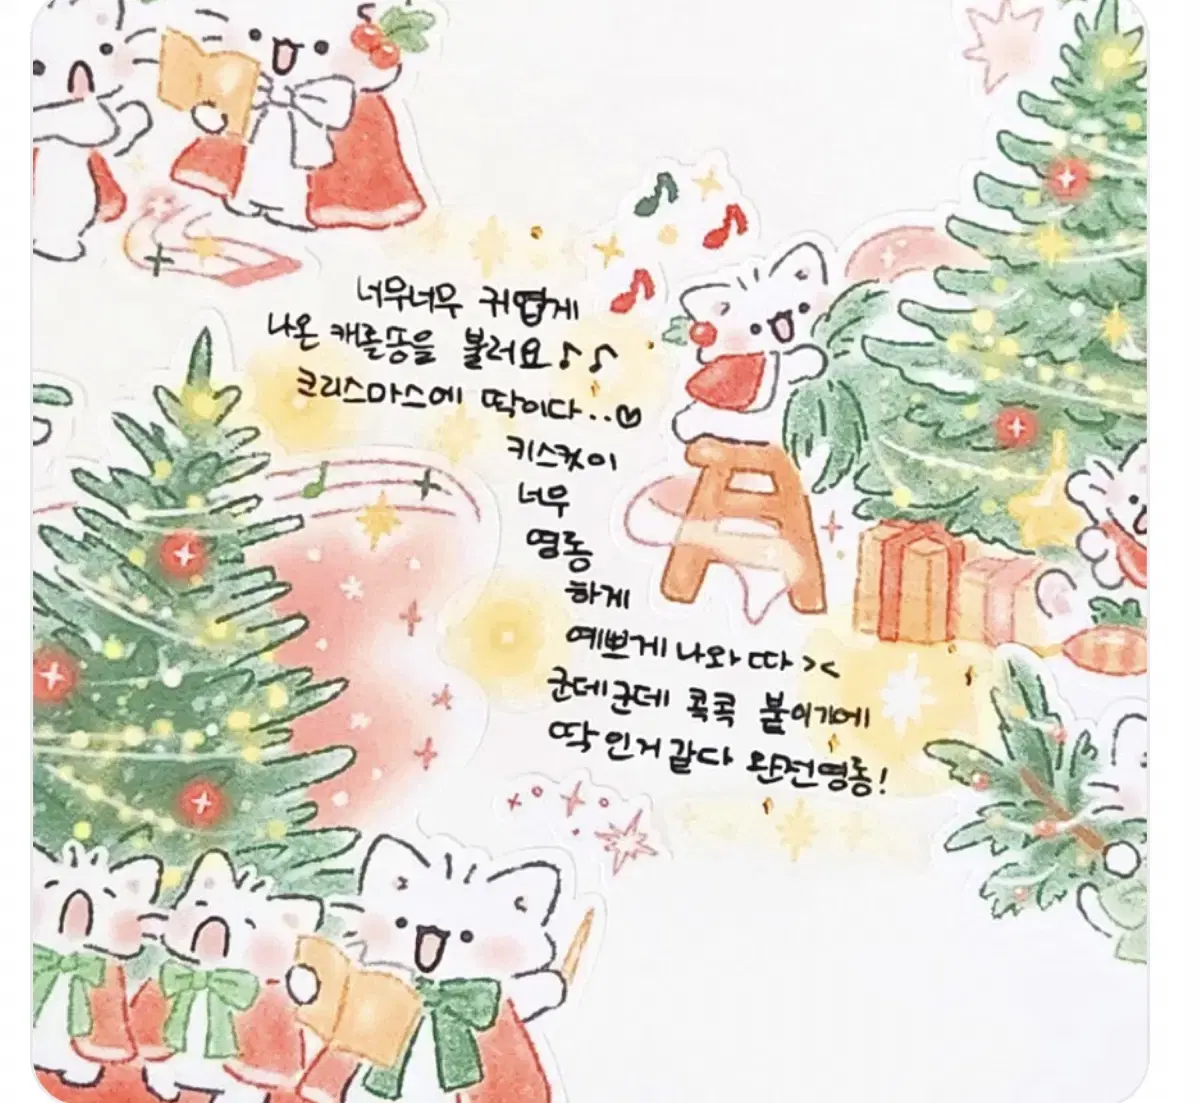 너무너무 귀엽게
나온 캐롤송을 불러요♪♪
크리스마스에 딱이다..♡
키스컷이
너무
영롱
하게
예쁘게 나와따><
군데군데 콕콕 붙이기에
딱인거같다 완전영롱!